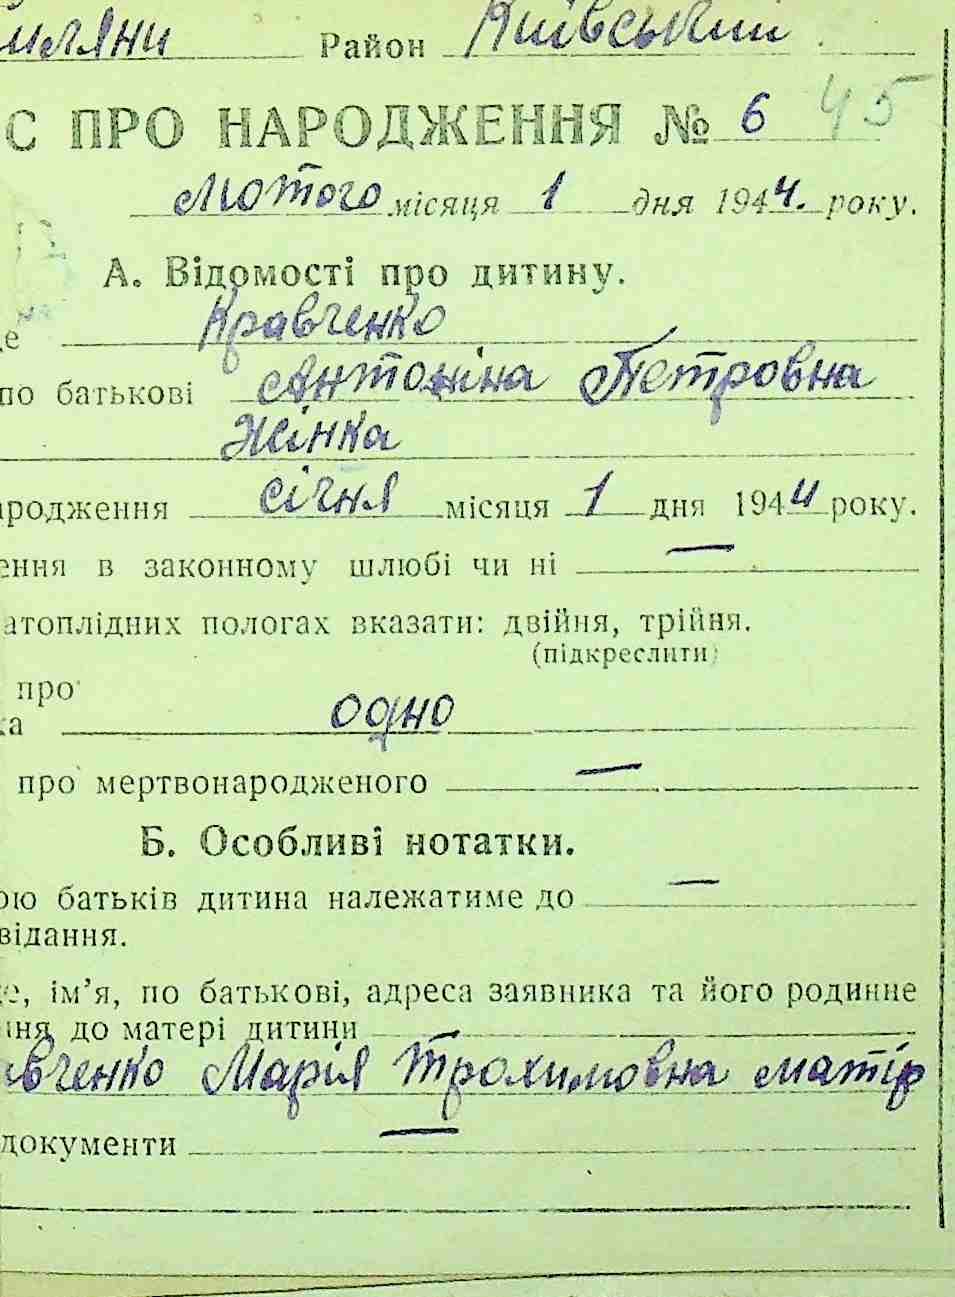 иляни Район Київський
С ПРО НАРОДЖЕННЯ № 6 45
Лютого місяця 1 дня 1944. року.
А. Відомості про дитину.
це Кравченко
по батькові Антоніна Петровна
Жінка
ародження січня місяця 1 дня 1944 року.
ення в законному шлюбі чи ні —
атоплідних пологах вказати: двійня, трійня.
(підкреслити)
про
ка одно
про мертвонародженого —
Б. Особливі нотатки.
ою батьків дитина належатиме до —
відання.
це, ім'я, по батькові, адреса заявника та його родинне
ння до матері дитини
авченко Марія Трохимовна матір
документи —